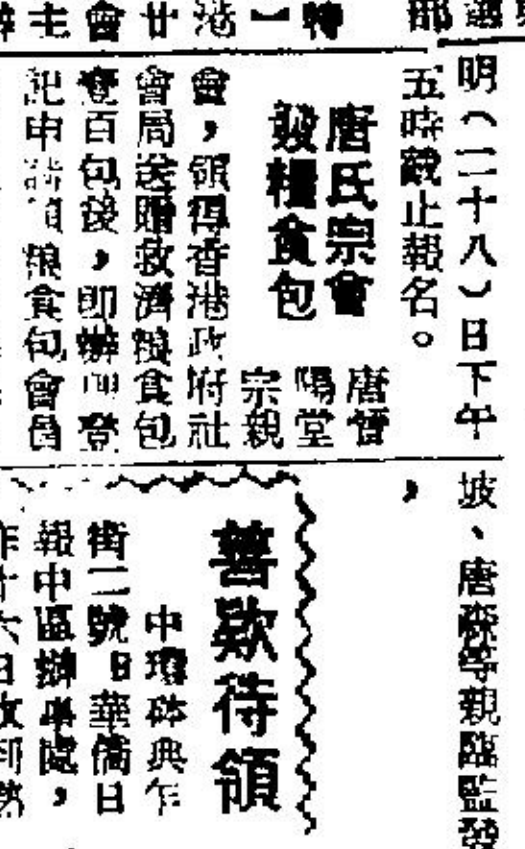 港廿會主
明(二十八)日下午
五時截止報名。
唐氏宗會
發糧食包
唐晉
陽堂
宗親
會,領得香港政府社
會局送贈救濟糧食包
壹百包後,即辦 登
記申 領糧食包會員
坡、唐 等親臨監發
,
善欵待領
中環砵典乍
街二號 華僑日
報中區辦事處,
昨廿六日收到